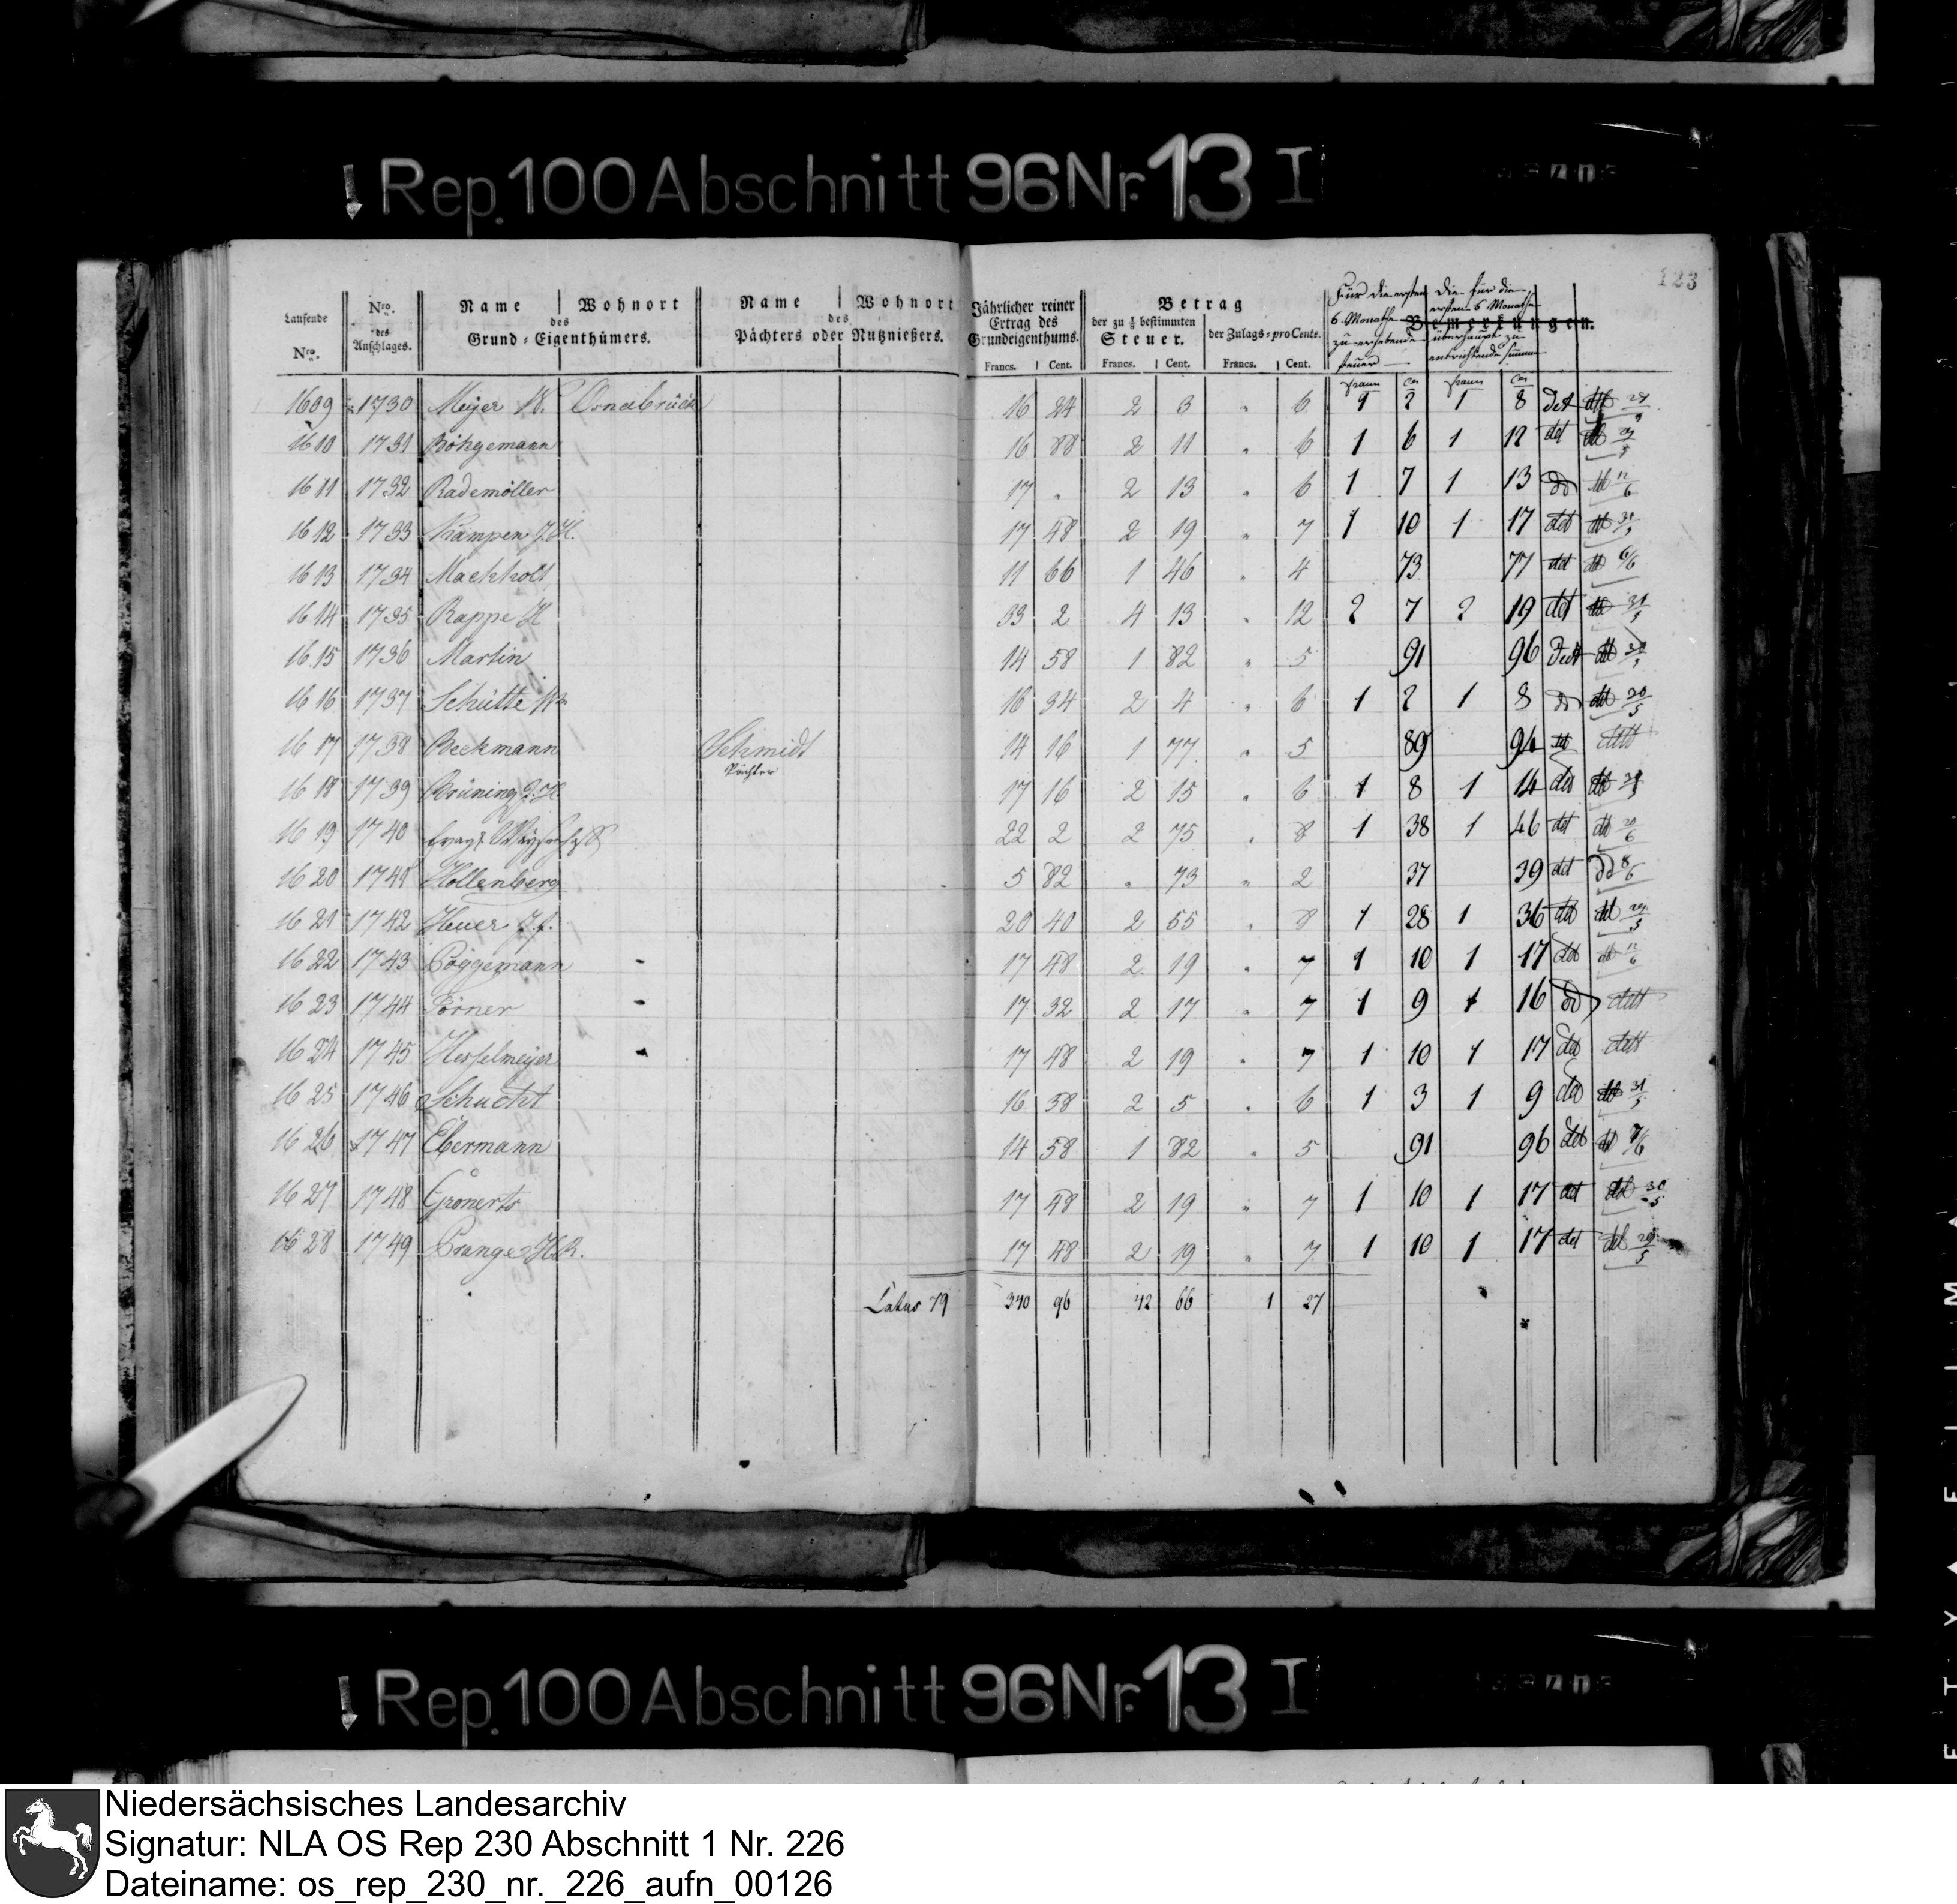 Rep. 100 Abschnitt 96 Nr. 13 I
123
Laufende Nro. | Nro. des Anschlages. | Name Wohnort des Grund=Eigenthümers. | Name Wohnort des Pächters oder Nutznießers. | Jährlicher reiner Ertrag des Grundeigenthums. | Betrag der zu 1/8 bestimmten Steuer. | der Zulags=pro Cente. | Für die ersten 6. Monathe zu erhebende Steuer | Die für die ersten 6 Monathe überhaupt zu entrichtende Summe | Bemerkungen.
Francs. Cent. Francs. Cent. Francs. Cent. Francs Cen Francs Cen
1609 1730 Meyer W. Osnabrück 16 24 2 3 " 6 1 2 1 8 det
1610 1731 Böhgemann 16 88 2 11 " 6 1 6 1 12 det
1611 1732 Rademöller 17 " 2 13 " 6 1 7 1 13 do 12/6
1612 1733 Kampen J.H. 17 48 2 19 " 7 1 10 1 17 det
1613 1734 Mackholt 11 66 1 46 " 4 73 77 det 6/6
1614 1735 Rappe H 33 2 4 13 " 12 2 7 2 19 det 31/5
1615 1736 Martin 14 58 1 82 " 5 91 96 dett
1616 1737 Schütte 16 34 2 4 " 6 1 2 1 8 do 30/5
1617 1738 Beckmann Schmidt 14 16 1 77 " 5 89 94 det dett
Pächter
1618 1739 Brüning 17 16 2 15 " 6 1 8 1 14 det
1619 1740 22 2 2 75 " 8 1 38 1 46 det
1620 1741 Hollenberg 5 82 " 73 " 2 37 39 det 8/6
1621 1742 Heuer J.f. 20 40 2 55 " 8 1 28 1 36 det 29/5
1622 1743 Poggemann - 17 48 2 19 " 7 1 10 1 17 det 12/6
1623 1744 Törner - 17 32 2 17 " 7 1 9 1 16 do dett
1624 1745 Hesselmeyer - 17 48 2 19 " 7 1 10 1 17 det dett
1625 1746 Schucht 16 38 2 5 " 6 1 3 1 9 det 31/5
1626 1747 Ebermann 14 58 1 82 " 5 91 96 det 7/6
1627 1748 Gronerts 17 48 2 19 " 7 1 10 1 17 det 30/5
1628 1749 Prange H.R. 17 48 2 19 " 7 1 10 1 17 det 29/5
Latus 79 340 96 42 66 1 27
Rep. 100 Abschnitt 96 Nr. 13 I
Niedersächsisches Landesarchiv
Signatur: NLA OS Rep 230 Abschnitt 1 Nr. 226
Dateiname: os_rep_230_nr._226_aufn_00126